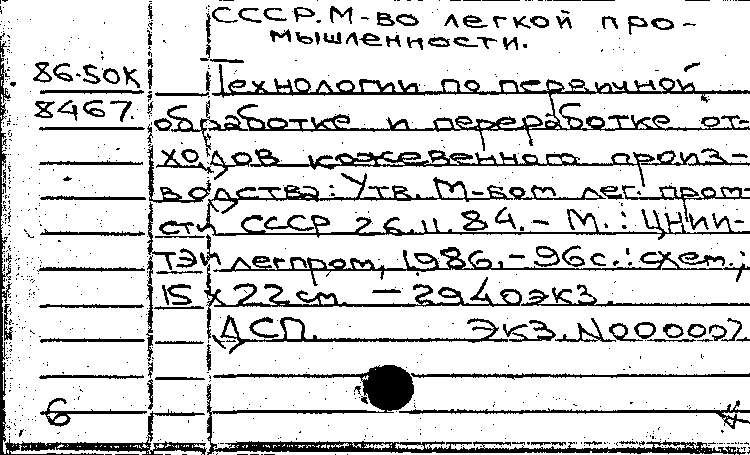 СССР. М-во легкой про-
мышленности.
86-50К Технологии по первичной
8467. обработке и переработке от-
ходов кожевенного произ-
водства: Утв. М-вом лег. пром-
сти СССР 26.11.84. - М.: ЦНИИ-
ТЭИлегпром, 1986. - 96с.: схем.;
15 х 22см. - 2940экз.
ДСП. Экз. N000007
6